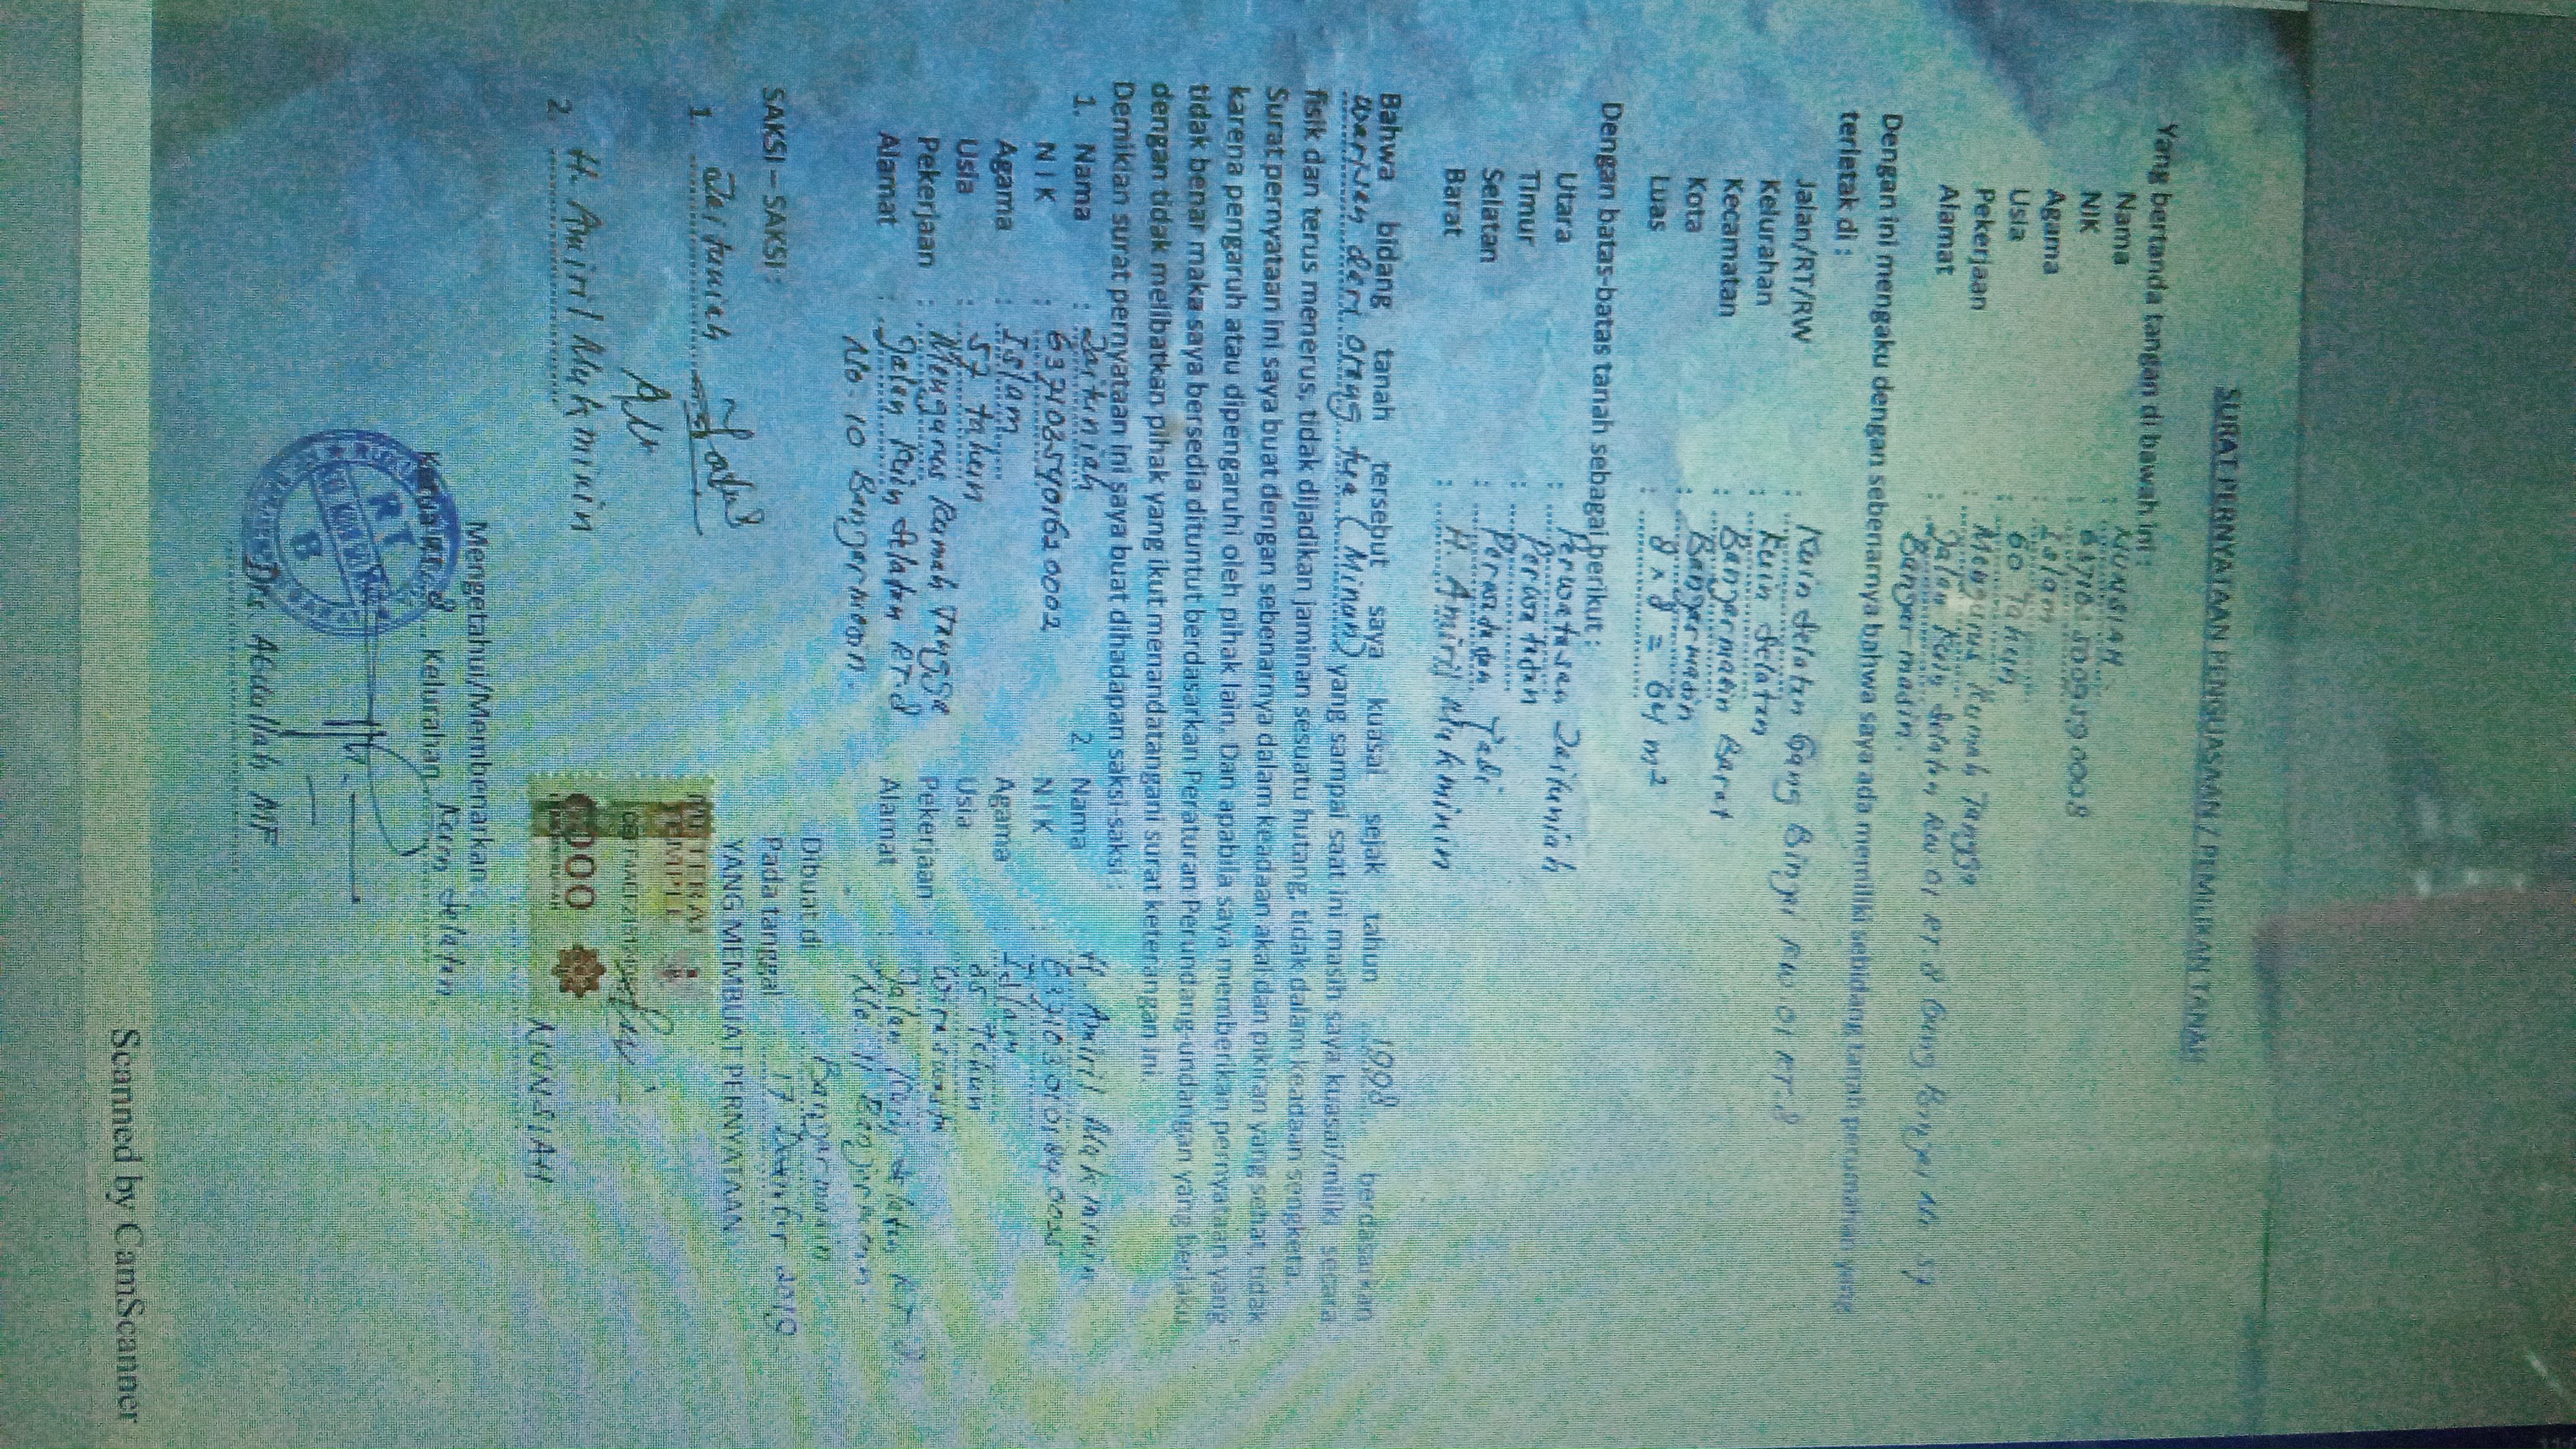 SURAT PERNYATAAN PENGUASAAN / PEMILIKAN TANAH
Yang bertanda tangan di bawah ini :
Nama : MUNSIAH
NIK :
Agama : Islam
Usia : 60 Tahun
Pekerjaan : Mengurus Rumah Tangga
Alamat : Jalan Kuin Selatan RW 01 RT 8 Gang Binjai No 51
Banjarmasin.
Dengan ini mengaku dengan sebenarnya bahwa saya ada memiliki sebidang tanah perumahan yang
terletak di :
Jalan/RT/RW : Kuin Selatan Gang Binjai RW 01 RT.8
Kelurahan : Kuin Selatan
Kecamatan : Banjarmasin Barat
Kota : Banjarmasin
Luas : 8 x 8 = 64 m²
Dengan batas-batas tanah sebagai berikut :
Utara : Perwatasan Jaituniah
Timur :
Selatan :
Barat : H. Amiril Mukminin
Bahwa bidang tanah tersebut saya kuasai sejak tahun 1998 berdasarkan
warisan dari orang tua (Minon) yang sampai saat ini masih saya kuasai/miliki secara
fisik dan terus menerus, tidak dijadikan jaminan sesuatu hutang, tidak dalam keadaan sengketa.
Surat pernyataan ini saya buat dengan sebenarnya dalam keadaan akal dan pikiran yang sehat, tidak
karena pengaruh atau dipengaruhi oleh pihak lain, Dan apabila saya memberikan pernyataan yang
tidak benar maka saya bersedia dituntut berdasarkan Peraturan Perundang-undangan yang berlaku
dengan tidak melibatkan pihak yang ikut menandatangani surat keterangan ini.
Demikian surat pernyataan ini saya buat dihadapan saksi-saksi :
1. Nama : Jaituniah 2. Nama : H Amiril Mukminin
N I K : N I K :
Agama : Islam Agama : Islam
Usia : 57 tahun Usia : Tahun
Pekerjaan : Mengurus Rumah Tangga Pekerjaan : Wiraswasta
Alamat : Jalan Kuin Selatan RT.8 Alamat : Jalan Kuin Selatan RT 8
No. 10 Banjarmasin. No. 11 Banjarmasin.
Dibuat di : Banjarmasin
Pada tanggal : 17 2019
SAKSI – SAKSI : YANG MEMBUAT PERNYATAAN
1. Jaituniah
METERAI
TEMPEL
6000
2. H. Amiril Mukminin
MUNSIAH
Mengetahui/Membenarkan
Ketua RT. 8 Kelurahan Kuin Selatan
RT
8
Drs Abdullah MF
Scanned by CamScanner